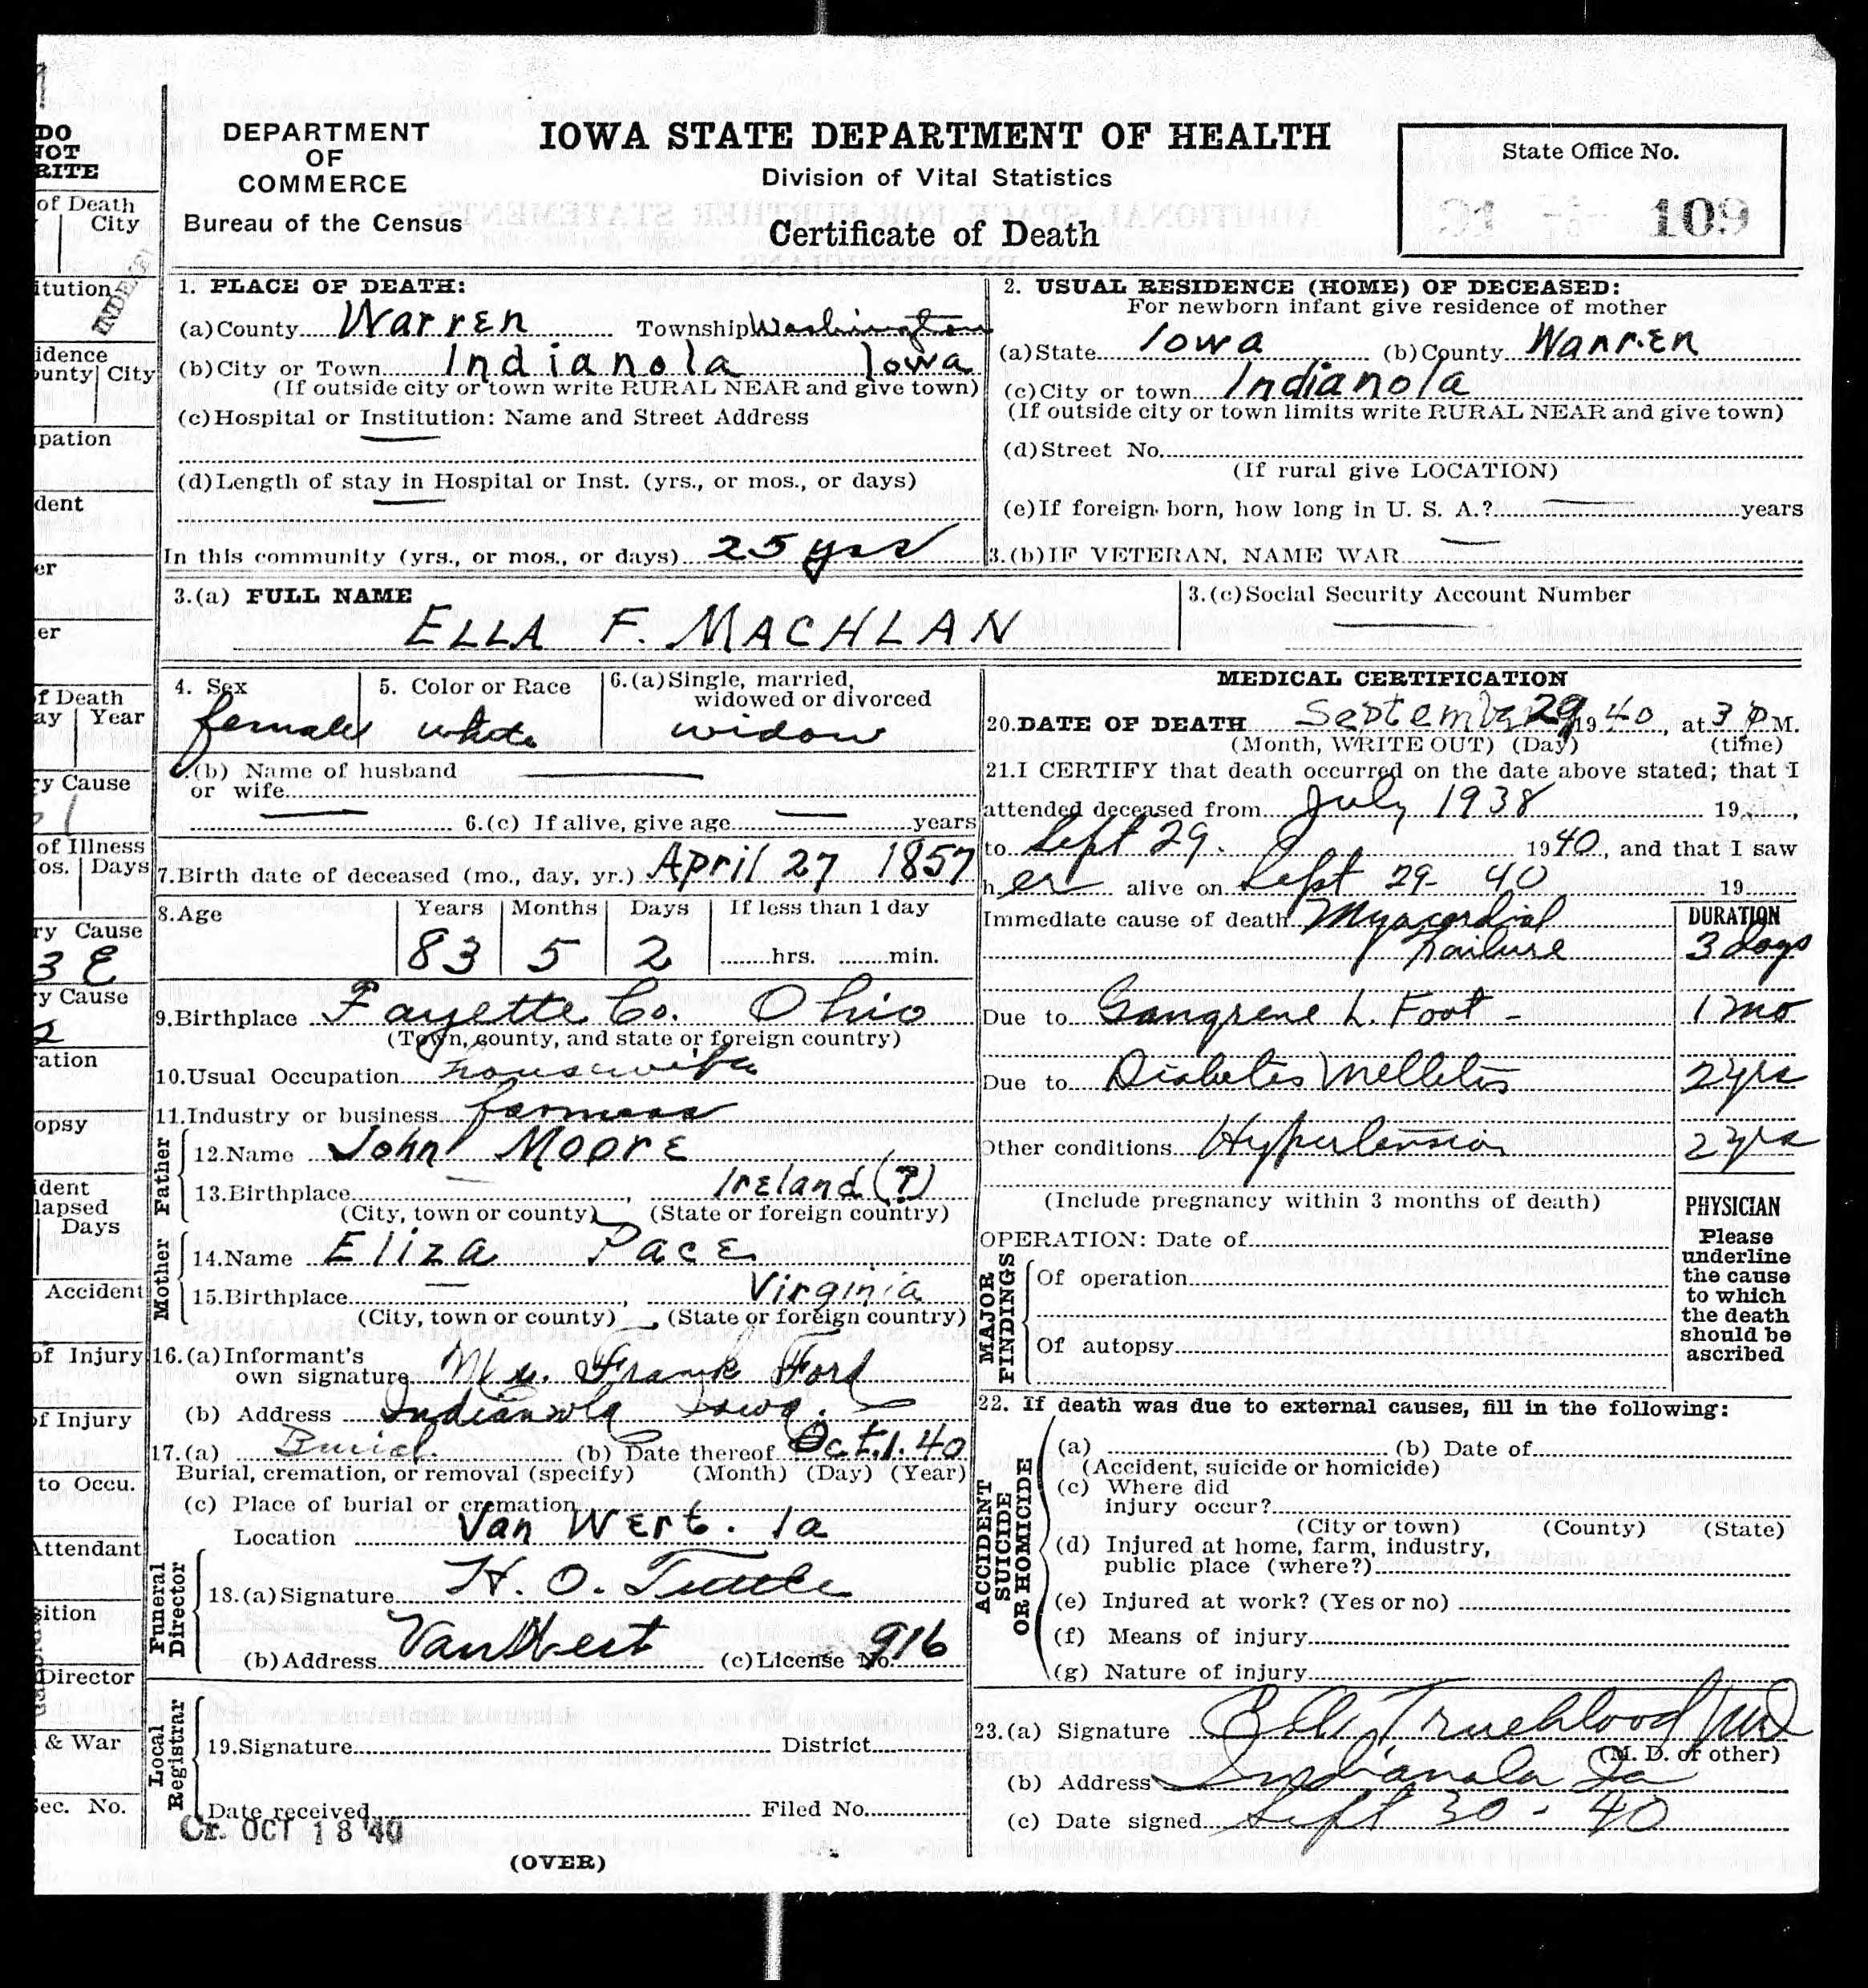 DO
NOT
RITE
of Death
City
itution
INDEXED
idence
ounty City
upation
dent
er
er
of Death
ay Year
ry Cause
of Illness
os. Days
ry Cause
3 E
ry Cause
2
ration
opsy
ident
lapsed
Days
Accident
of Injury
of Injury
to Occu.
Attendant
sition
Director
& War
Sec. No.
DEPARTMENT
OF
COMMERCE
Bureau of the Census
IOWA STATE DEPARTMENT OF HEALTH
Division of Vital Statistics
Certificate of Death
State Office No.
91 - - 109
1. PLACE OF DEATH:
(a) County Warren Township Washington
(b) City or Town Indianola Iowa
(If outside city or town write RURAL NEAR and give town)
(c) Hospital or Institution: Name and Street Address
(d) Length of stay in Hospital or Inst. (yrs., or mos., or days)
In this community (yrs., or mos., or days) 25 yrs
2. USUAL RESIDENCE (HOME) OF DECEASED:
For newborn infant give residence of mother
(a) State Iowa (b) County Warren
(c) City or town Indianola
(If outside city or town limits write RURAL NEAR and give town)
(d) Street No.
(If rural give LOCATION)
(e) If foreign born, how long in U. S. A.? years
3.(b) IF VETERAN, NAME WAR
3.(a) FULL NAME
ELLA F. MACHLAN
3.(c) Social Security Account Number
4. Sex
female
5. Color or Race
white
6.(a) Single, married,
widowed or divorced
widow
(b) Name of husband
or wife
6.(c) If alive, give age years
7. Birth date of deceased (mo., day, yr.) April 27 1857
8. Age
Years Months Days If less than 1 day
83 5 2 hrs. min.
9. Birthplace Fayette Co. Ohio
(Town, county, and state or foreign country)
10. Usual Occupation housewife
11. Industry or business
Father
12. Name John Moore
13. Birthplace Ireland (?)
(City, town or county) (State or foreign country)
Mother
14. Name Eliza Pace
15. Birthplace Virginia
(City, town or county) (State or foreign country)
16. (a) Informant's
own signature Mrs. Frank Ford
(b) Address Indianola Iowa.
17. (a) Burial (b) Date thereof Oct. 1. 40
Burial, cremation, or removal (specify) (Month) (Day) (Year)
(c) Place of burial or cremation
Location Van Wert. Ia
Funeral
Director
18. (a) Signature H. O. Tuttle
(b) Address Van Wert (c) License No. 916
Local
Registrar
19. Signature District
Date received Filed No.
Cr. OCT 18 '40
(OVER)
MEDICAL CERTIFICATION
20. DATE OF DEATH September 29 1940, at 3 P M.
(Month, WRITE OUT) (Day) (time)
21. I CERTIFY that death occurred on the date above stated; that I
attended deceased from July 1938 19 ,
to Sept 29. 1940, and that I saw
her alive on Sept 29 - 40 19.
Immediate cause of death Myocardial
Failure
DURATION
3 days
Due to Gangrene L. Foot - 1 mo
Due to Diabetes Melletis 2 yrs
Other conditions Hypertension 2 yrs
(Include pregnancy within 3 months of death)
OPERATION: Date of
MAJOR
FINDINGS
Of operation
Of autopsy
PHYSICIAN
Please
underline
the cause
to which
the death
should be
ascribed
22. If death was due to external causes, fill in the following:
ACCIDENT
SUICIDE
OR HOMICIDE
(a) (b) Date of
(Accident, suicide or homicide)
(c) Where did
injury occur?
(City or town) (County) (State)
(d) Injured at home, farm, industry,
public place (where?)
(e) Injured at work? (Yes or no)
(f) Means of injury
(g) Nature of injury
23. (a) Signature Trueblood MD
(M. D. or other)
(b) Address Indianola Ia
(c) Date signed Sept 30 - 40